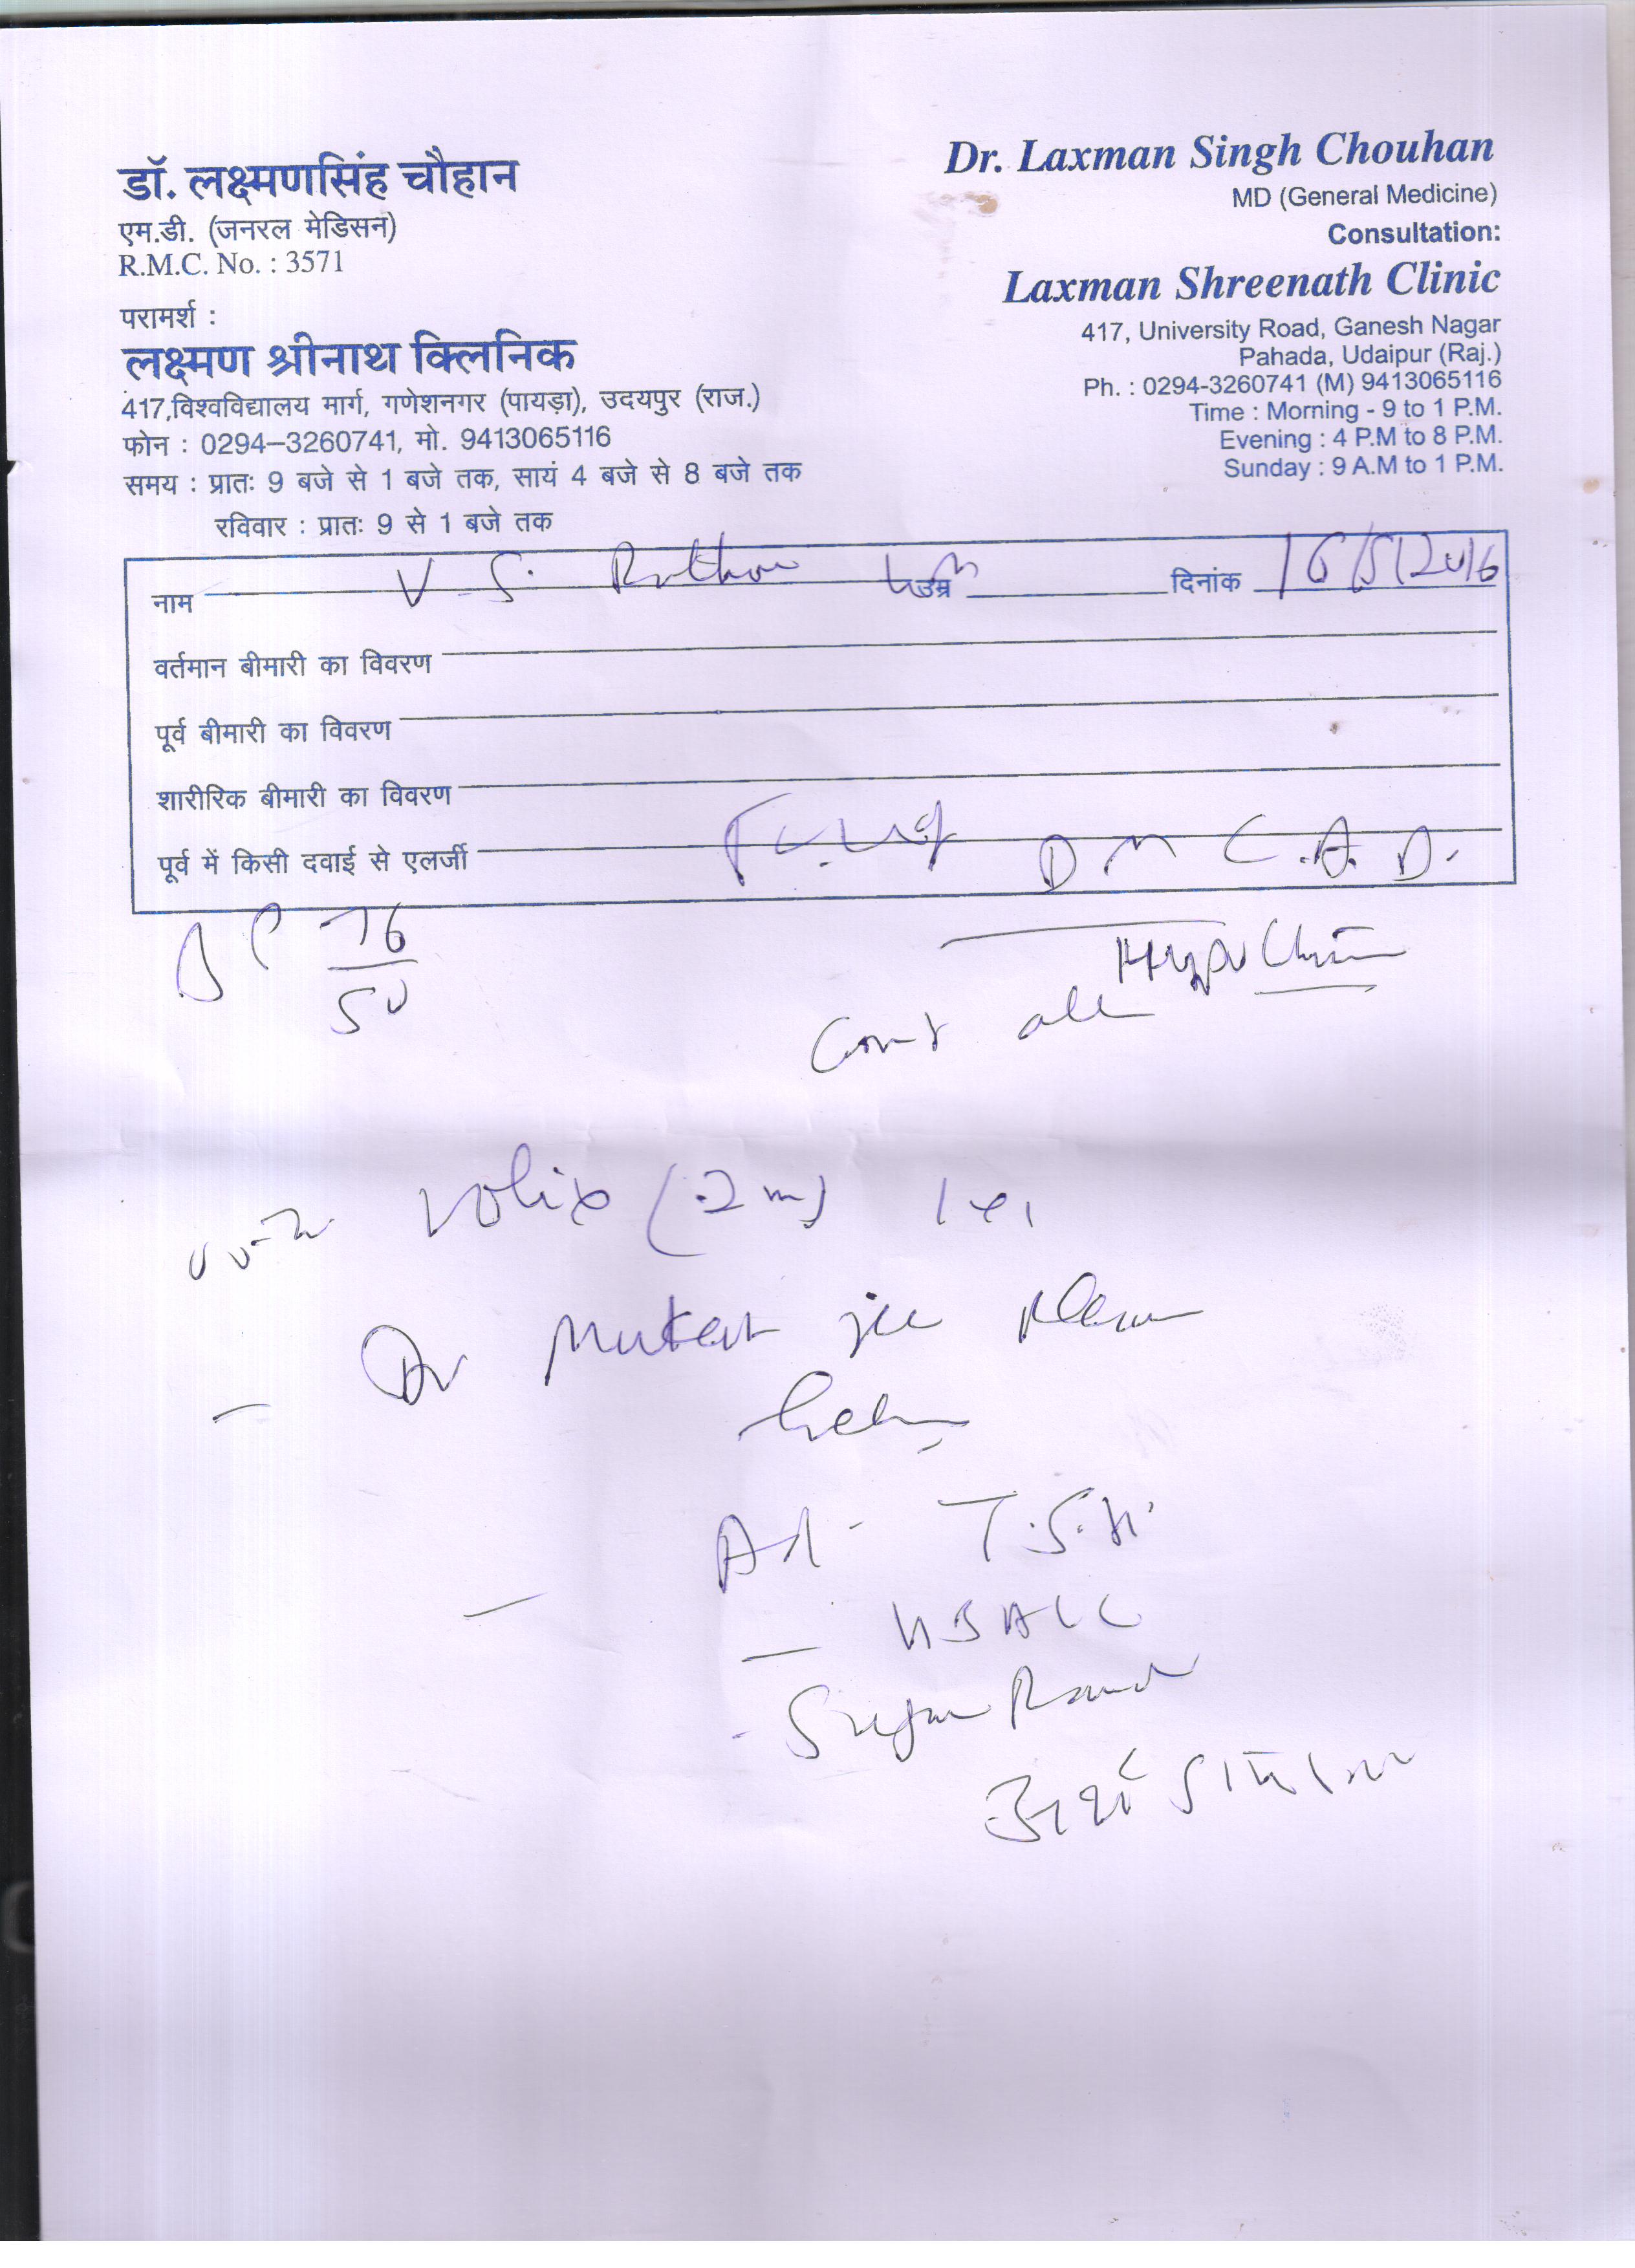 डॉ. लक्ष्मणसिंह चौहान
एम.डी. (जनरल मेडिसन)
R.M.C. No. : 3571
परामर्श :
लक्ष्मण श्रीनाथ क्लिनिक
417,विश्वविद्यालय मार्ग, गणेशनगर (पायड़ा), उदयपुर (राज.)
फोन : 0294-3260741, मो. 9413065116
समय : प्रातः 9 बजे से 1 बजे तक, सायं 4 बजे से 8 बजे तक
रविवार : प्रातः 9 से 1 बजे तक
Dr. Laxman Singh Chouhan
MD (General Medicine)
Consultation:
Laxman Shreenath Clinic
417, University Road, Ganesh Nagar
Pahada, Udaipur (Raj.)
Ph. : 0294-3260741 (M) 9413065116
Time : Morning - 9 to 1 P.M.
Evening : 4 P.M to 8 P.M.
Sunday : 9 A.M to 1 P.M.
नाम V. S. उम्र दिनांक 16/5/2016
वर्तमान बीमारी का विवरण
पूर्व बीमारी का विवरण
शारीरिक बीमारी का विवरण
पूर्व में किसी दवाई से एलर्जी
DM C.A.D.
BP 76
50
Cont all
Volix (.2 mg)
Dr Mukesh jee Please
Ad - T.S.H.
- HBA1C
- Sugar